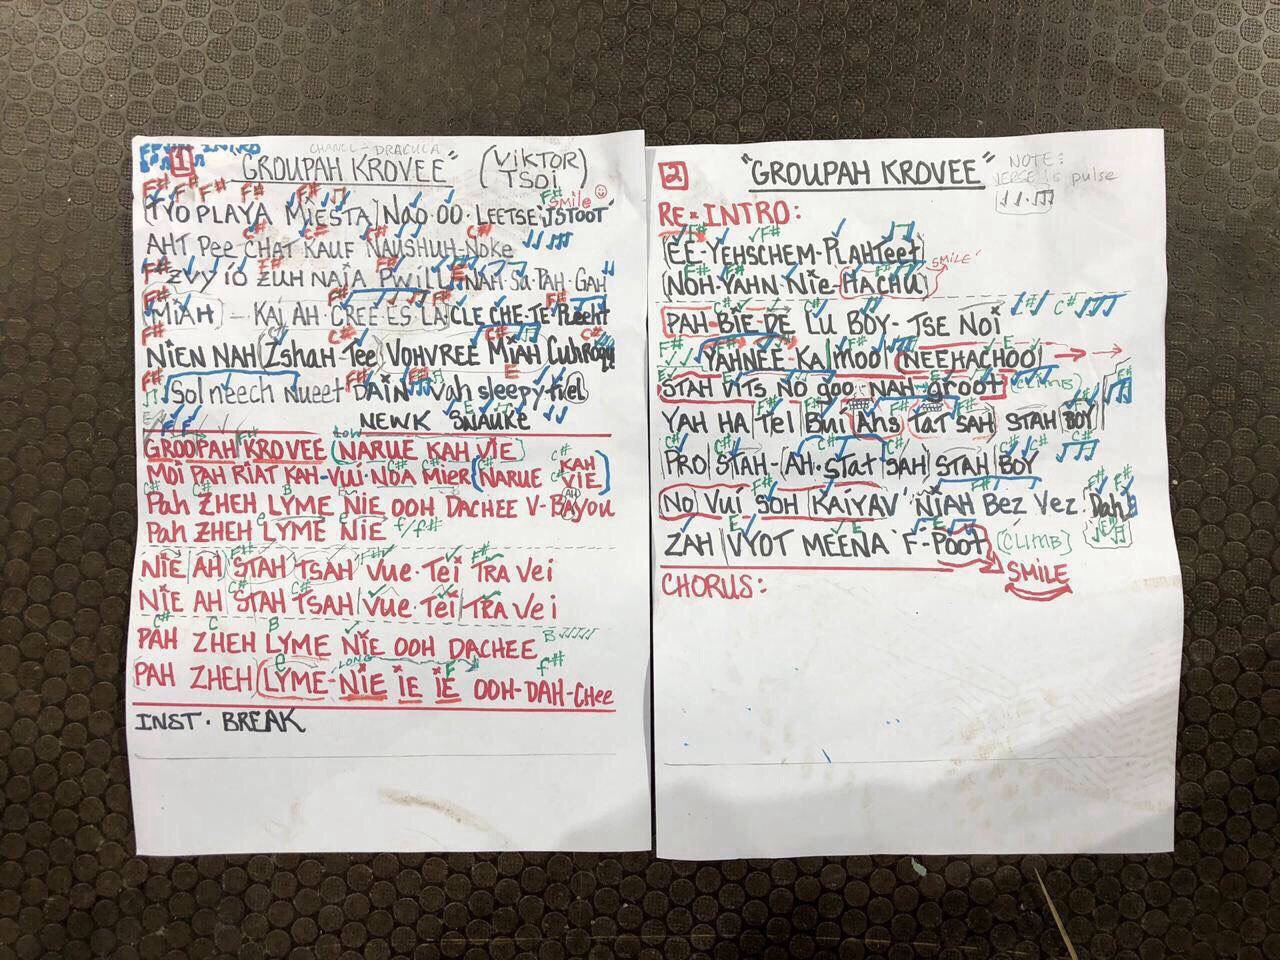 1
CHANEL - DRACULA
"GROUPAH KROVEE" (VIKTOR TSOI)
SMILE
TYO PLAYA MIESTA NAO·OO·LEETSE
AHT Pee CHAT KAUF NAUSHUH-NOKE
ZVY IO ZUH NAIA PWILL NAH-Su-PAH-GAH
MIAH - KAI AH CREE ES LA CLE CHE-TE
NIEN NAH ZshaH Tee VOHVREE MIAH
Sol neech nueet DAIN Vah sleepy
NEWK SNAUKE
GROOPAH KROVEE (NARUE KAH VIE)
MOI PAH RIAT KAH-VUI-NOA MIER (NARUE KAH VIE)
Pah ZHEH LYME NIE OOH DACHEE V-BAYOU
Pah ZHEH LYME NIE f/f#
NIE AH STAH TSAH VUE·TEI TRA Vei
NIE AH STAH TSAH VUE·TEI TRA Vei
PAH ZHEH LYME NIE OOH DACHEE
PAH ZHEH LYME-NIE IE IE OOH-DAH-CHee
LONG
INST·BREAK
2
"GROUPAH KROVEE"
NOTE:
VERSE is pulse
RE-INTRO:
EE-YEHSCHEM-PLAHTEET
NOH-YAHN-Nie-HACHU SMILE
PAH-BIE-DE LU BOY-TSE NOI
YAHNEE-KAMOO NEEHACHOO
STAH VITS NO goo NAH groot (CLIMB)
YAH HA TEL BUI AHS TAT SAH STAH BOY
PRO STAH-AH·STAT SAH STAH BOY
NO VUI SOH KAIYAV' NIAH Bez Vez Dah
ZAH VYOT MEENA F-POOT (CLIMB)
SMILE
CHORUS: